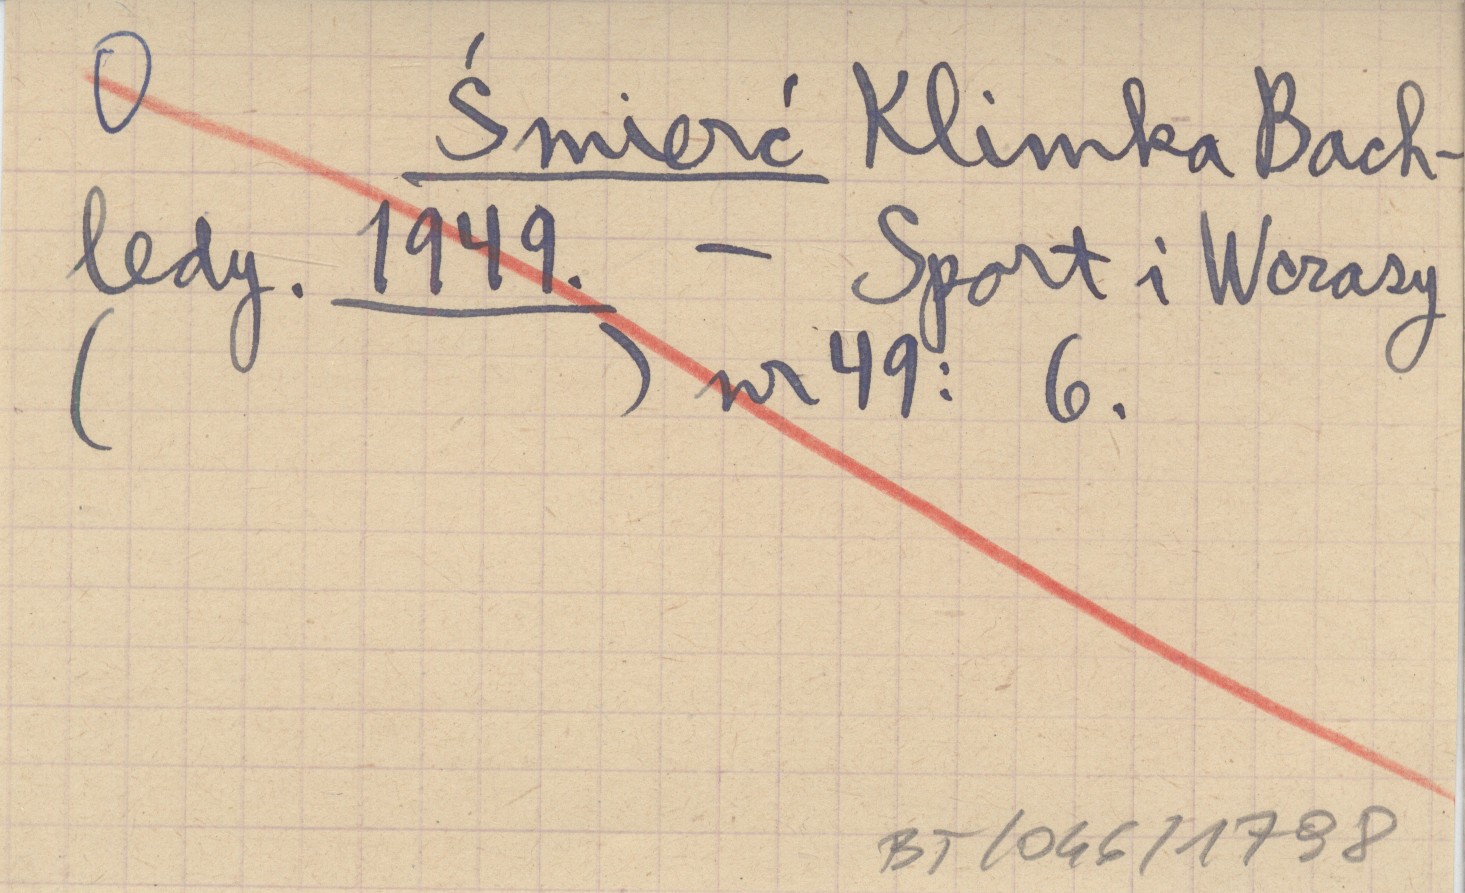 O Śmierć Klimka Bach-
ledy. 1949. – Sport i Wczasy
( ) nr 49: 6.
BT/046/1798